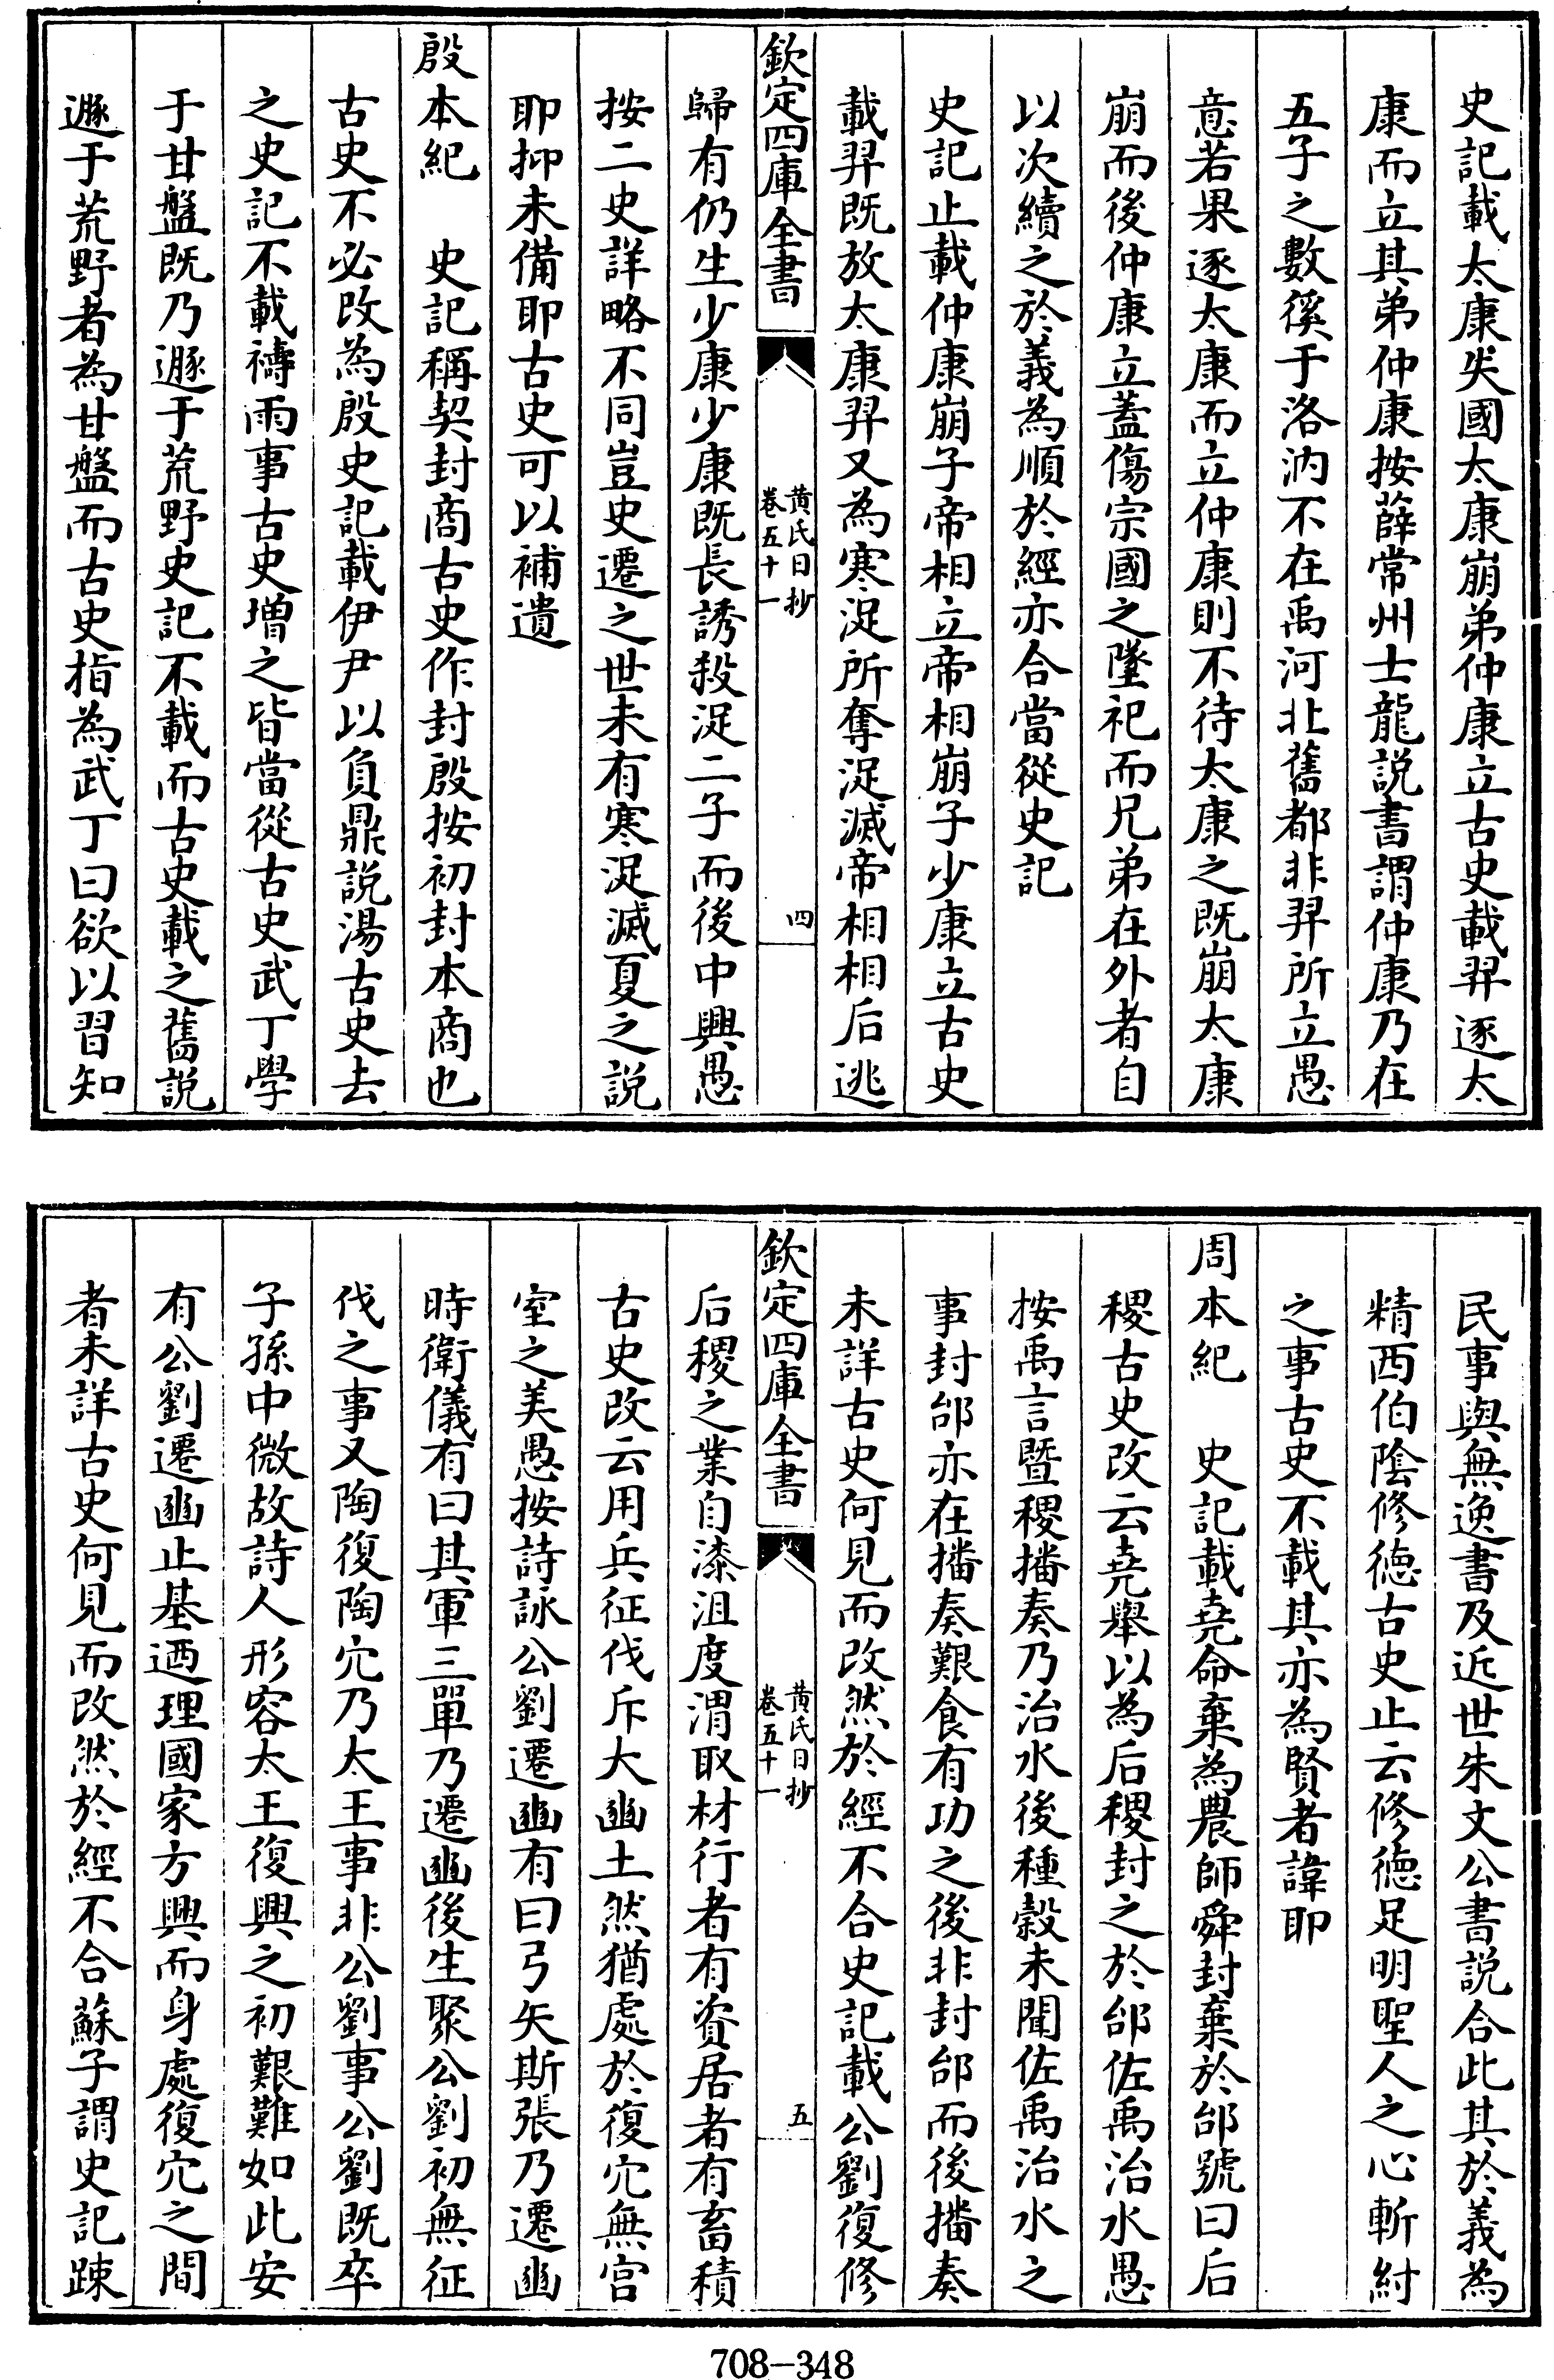 史記載太康失國太康崩弟仲康立古史載羿逐太
康而立其弟仲康按薛常州士龍説書謂仲康乃在
五子之數徯于洛汭不在禹河北舊都非羿所立愚
意若果逐太康而立仲康則不待太康之既崩太康
崩而後仲康立蓋傷宗國之墜祀而兄弟在外者自
以次續之於義為順於經亦合當從史記
史記止載仲康崩子帝相立帝相崩子少康立古史
載羿既放太康羿又為寒浞所奪浞滅帝相相后逃
欽定四庫全書
黄氏日抄
卷五十一
四
歸有仍生少康少康既長誘殺浞二子而後中興愚
按二史詳略不同豈史遷之世未有寒浞滅夏之説
耶抑未備耶古史可以補遺
殷本紀 史記稱契封商古史作封殷按初封本商也
古史不必改為殷史記載伊尹以負鼎説湯古史去
之史記不載禱雨事古史增之皆當從古史武丁學
于甘盤既乃遯于荒野史記不載而古史載之舊説
遯于荒野者為甘盤而古史指為武丁曰欲以習知
民事與無逸書及近世朱文公書説合此其於義為
精西伯陰修德古史止云修德足明聖人之心斬紂
之事古史不載其亦為賢者諱耶
周本紀 史記載堯命棄為農師舜封棄於邰號曰后
稷古史改云堯舉以為后稷封之於邰佐禹治水愚
按禹言暨稷播奏乃治水後種穀未聞佐禹治水之
事封邰亦在播奏艱食有功之後非封邰而後播奏
未詳古史何見而改然於經不合史記載公劉復修
欽定四庫全書
黄氏日抄
卷五十一
五
后稷之業自漆沮度渭取材行者有資居者有畜積
古史改云用兵征伐斥大豳土然猶處於復穴無宫
室之美愚按詩詠公劉遷豳有曰弓矢斯張乃遷豳
時衛儀有曰其軍三單乃遷豳後生聚公劉初無征
伐之事又陶復陶穴乃太王事非公劉事公劉既卒
子孫中微故詩人形容太王復興之初艱難如此安
有公劉遷豳止基迺理國家方興而身處復穴之間
者未詳古史何見而改然於經不合蘇子謂史記踈
708-348